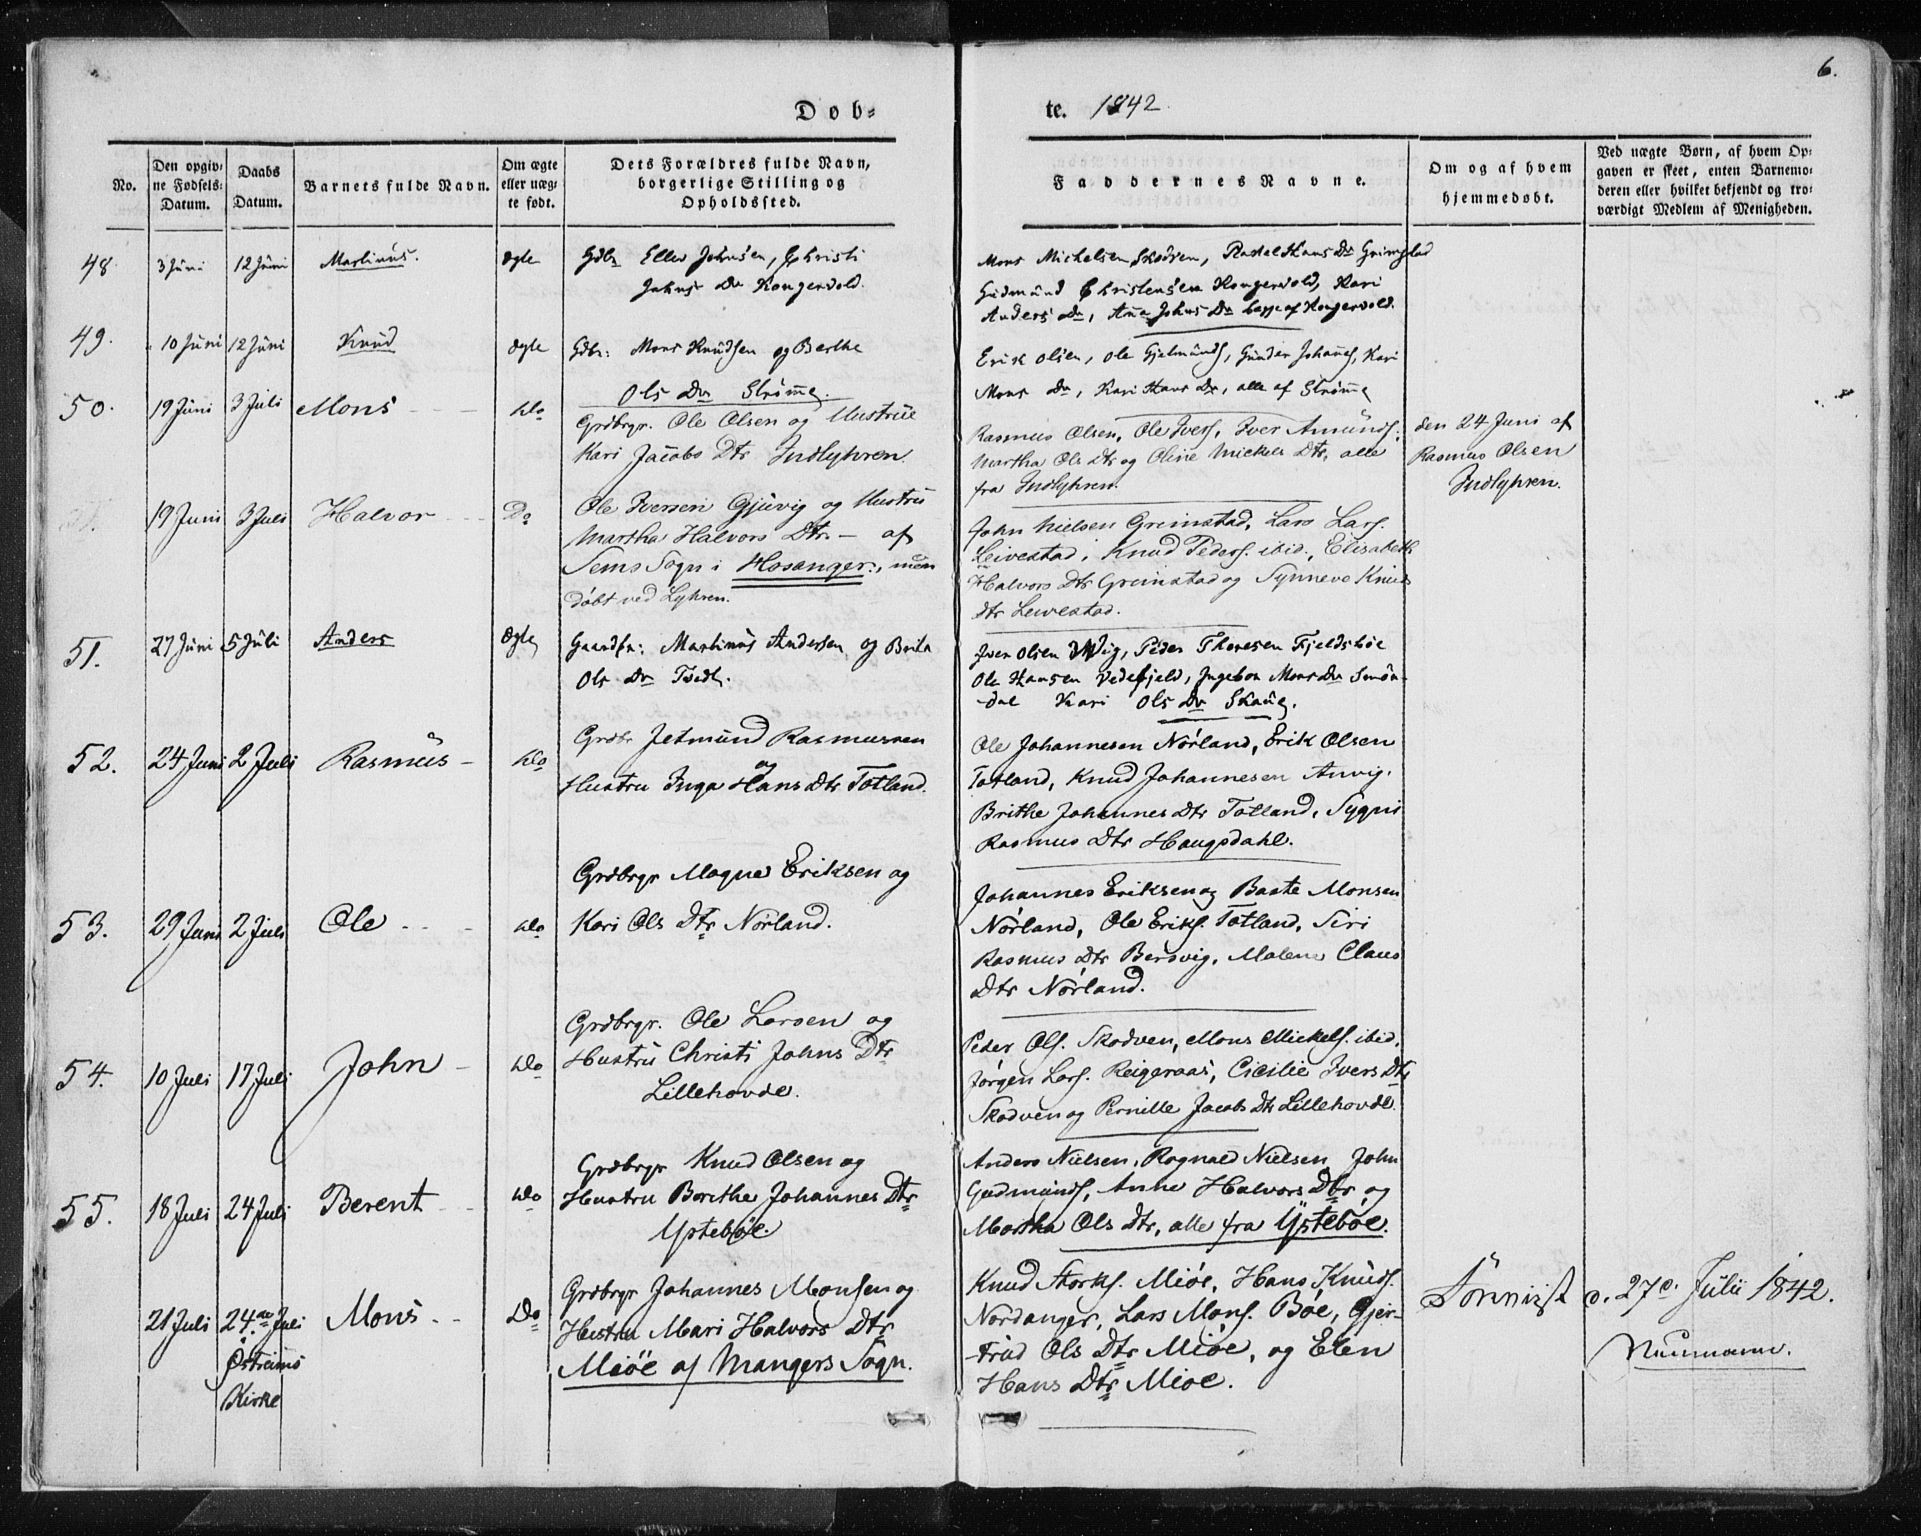 6.
Døb-
te. 1842
No.
Den opgiv-
ne Fødsels-
Datum.
Daabs
Datum.
Barnets fulde Navn.
Om ægte
eller uæg-
te født.
Dets Forældres fulde Navn,
borgerlige Stilling og
Opholdssted.
Faddernes Navne.
Om og af hvem
hjemmedøbt.
Ved uægte Børn, af hvem Op-
gaven er skeet, enten Barnemo-
deren eller hvilket bekjendt og tro-
værdigt Medlem af Menigheden.
48. 3 Juni 12 Juni Martinus. ægte
Gdbr Eller Johnsen, Christi
Johns Dr Kongervold.
Mons Michelsen Skodven, Hans Dr Grimstad
Gudmund Christensen Kongervold, Kari
Anders Dr, Anna Johns Dr begge af Kongervold.
49. 10 Juni 12 Juni Knud ægte
Gdbr: Mons Knudsen og Berthe
Ols Dr Strømme.
Erik Olsen, Ole Gjelmunds, Gunder Johans, Kari
Mons Dr, Kari Hans Dr, alle af Strømme
50. 19 Juni 3 Juli Mons Do
Grdbrgr. Ole Olsen og Hustrue
Kari Jacobs Dtr Indlyhren.
Rasmus Olsen, Ole Ivers, Iver Amunds,
Martha Ols Dtr og Oline Mickels Dtr, alle
fra Indlyhren.
den 24 Juni af
Rasmus Olsen
Indlyhren.
19 Juni 3 Juli Halvor Do
Ole Iversen Gjuvig og Hustru
Martha Halvors Dtr. - af
Sems Sogn i Hosanger, men
døbt ved Lyhren.
John Nielsen Greinstad, Lars Lars.
Leivestad, Knud Peders. ibid, Elisabeth
Halvors Dtr Greinstad og Synneve Knuds
dtr Leivestad.
51. 27 Juni 5 Juli Anders Ægte
Gaardbr: Martinus Andersen og Brita
Ols Dr Tvedt.
Iver Olsen Wig, Peder Thoresen Fjeldsbøe
Ole Hansen Vedefjeld, Ingebor Mons Dr Smøn-
-dal Kari Ols Dr Skaug.
52. 24 Juni 2 Juli Rasmus Do
Grdbr Jetmund Rasmussen
og
Hustru Inga Hans Dtr Totland.
Ole Johannesen Nørland, Erik Olsen
Totland, Knud Johannesen Anvig,
Brithe Johannes Dtr Totland, Sygni
Rasmus Dtr Haugsdahl.
53. 29 Juni 2 Juli Ole Do
Grdbrgr Magne Eriksen og
Kari Ols Dtr Nørland.
Johannes Eriksen og Baate Monsen
Nørland, Ole Eriks. Totland, Siri
Rasmus Dtr Bersvig, Malene Claus
Dtr Nørland.
54. 10 Juli 17 Juli John Do
Grdbrgr. Ole Larsen og
Hustru Christi Johns Dtr
Lillehovde.
Peder Ols. Skodven, Mons Mickels. ibid,
Jørgen Lars. Reigeraas, Cicilie Ivers Dtr
Skodven og Pernille Jacobs Dtr Lillehovde.
55. 18 Juli 24 Juli Berent Do
Grdbrgr Knud Olsen og
Hustru Berithe Johannes Dtr
Ystebøe.
Anders Nielsen, Rognald Nielsen John
Gudmunds, Anne Halvors Dtr og
Martha Ols Dtr, alle fra Ystebøe.
21 Juli 24. Juli
Østreims
Kirke
Mons Do
Grdbrgr Johannes Monsen og
Hustru Mari Halvors Dtr
Miøe af Mangers Sogn.
Knud Storks. Miøe, Hans Knuds.
Nordanger, Lars Mons. Bøe, Gjer-
-trud Ols Dtr Miøe, og Elen
Hans Dtr Miøe.
d. 27e Julii 1842.
Neumann.